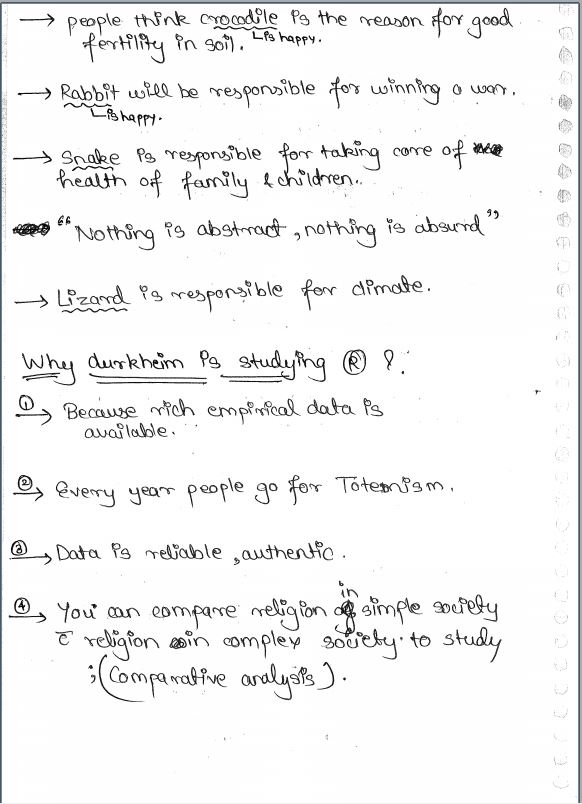 → people think crocodile is the reason for good
fertility in soil. ↳ is happy.
→ Rabbit will be responsible for winning a war.
↳ is happy.
→ Snake is responsible for taking care of
health of family & children..
"Nothing is abstract, nothing is absurd"
→ Lizard is responsible for climate.
Why durkheim is studying Ⓡ ?
① → Because rich empirical data is
available.
② → Every year people go for Totemism.
③ → Data is reliable, authentic.
in
④ → You can compare religion simple society
c̄ religion in complex society to study
; (Comparative analysis).